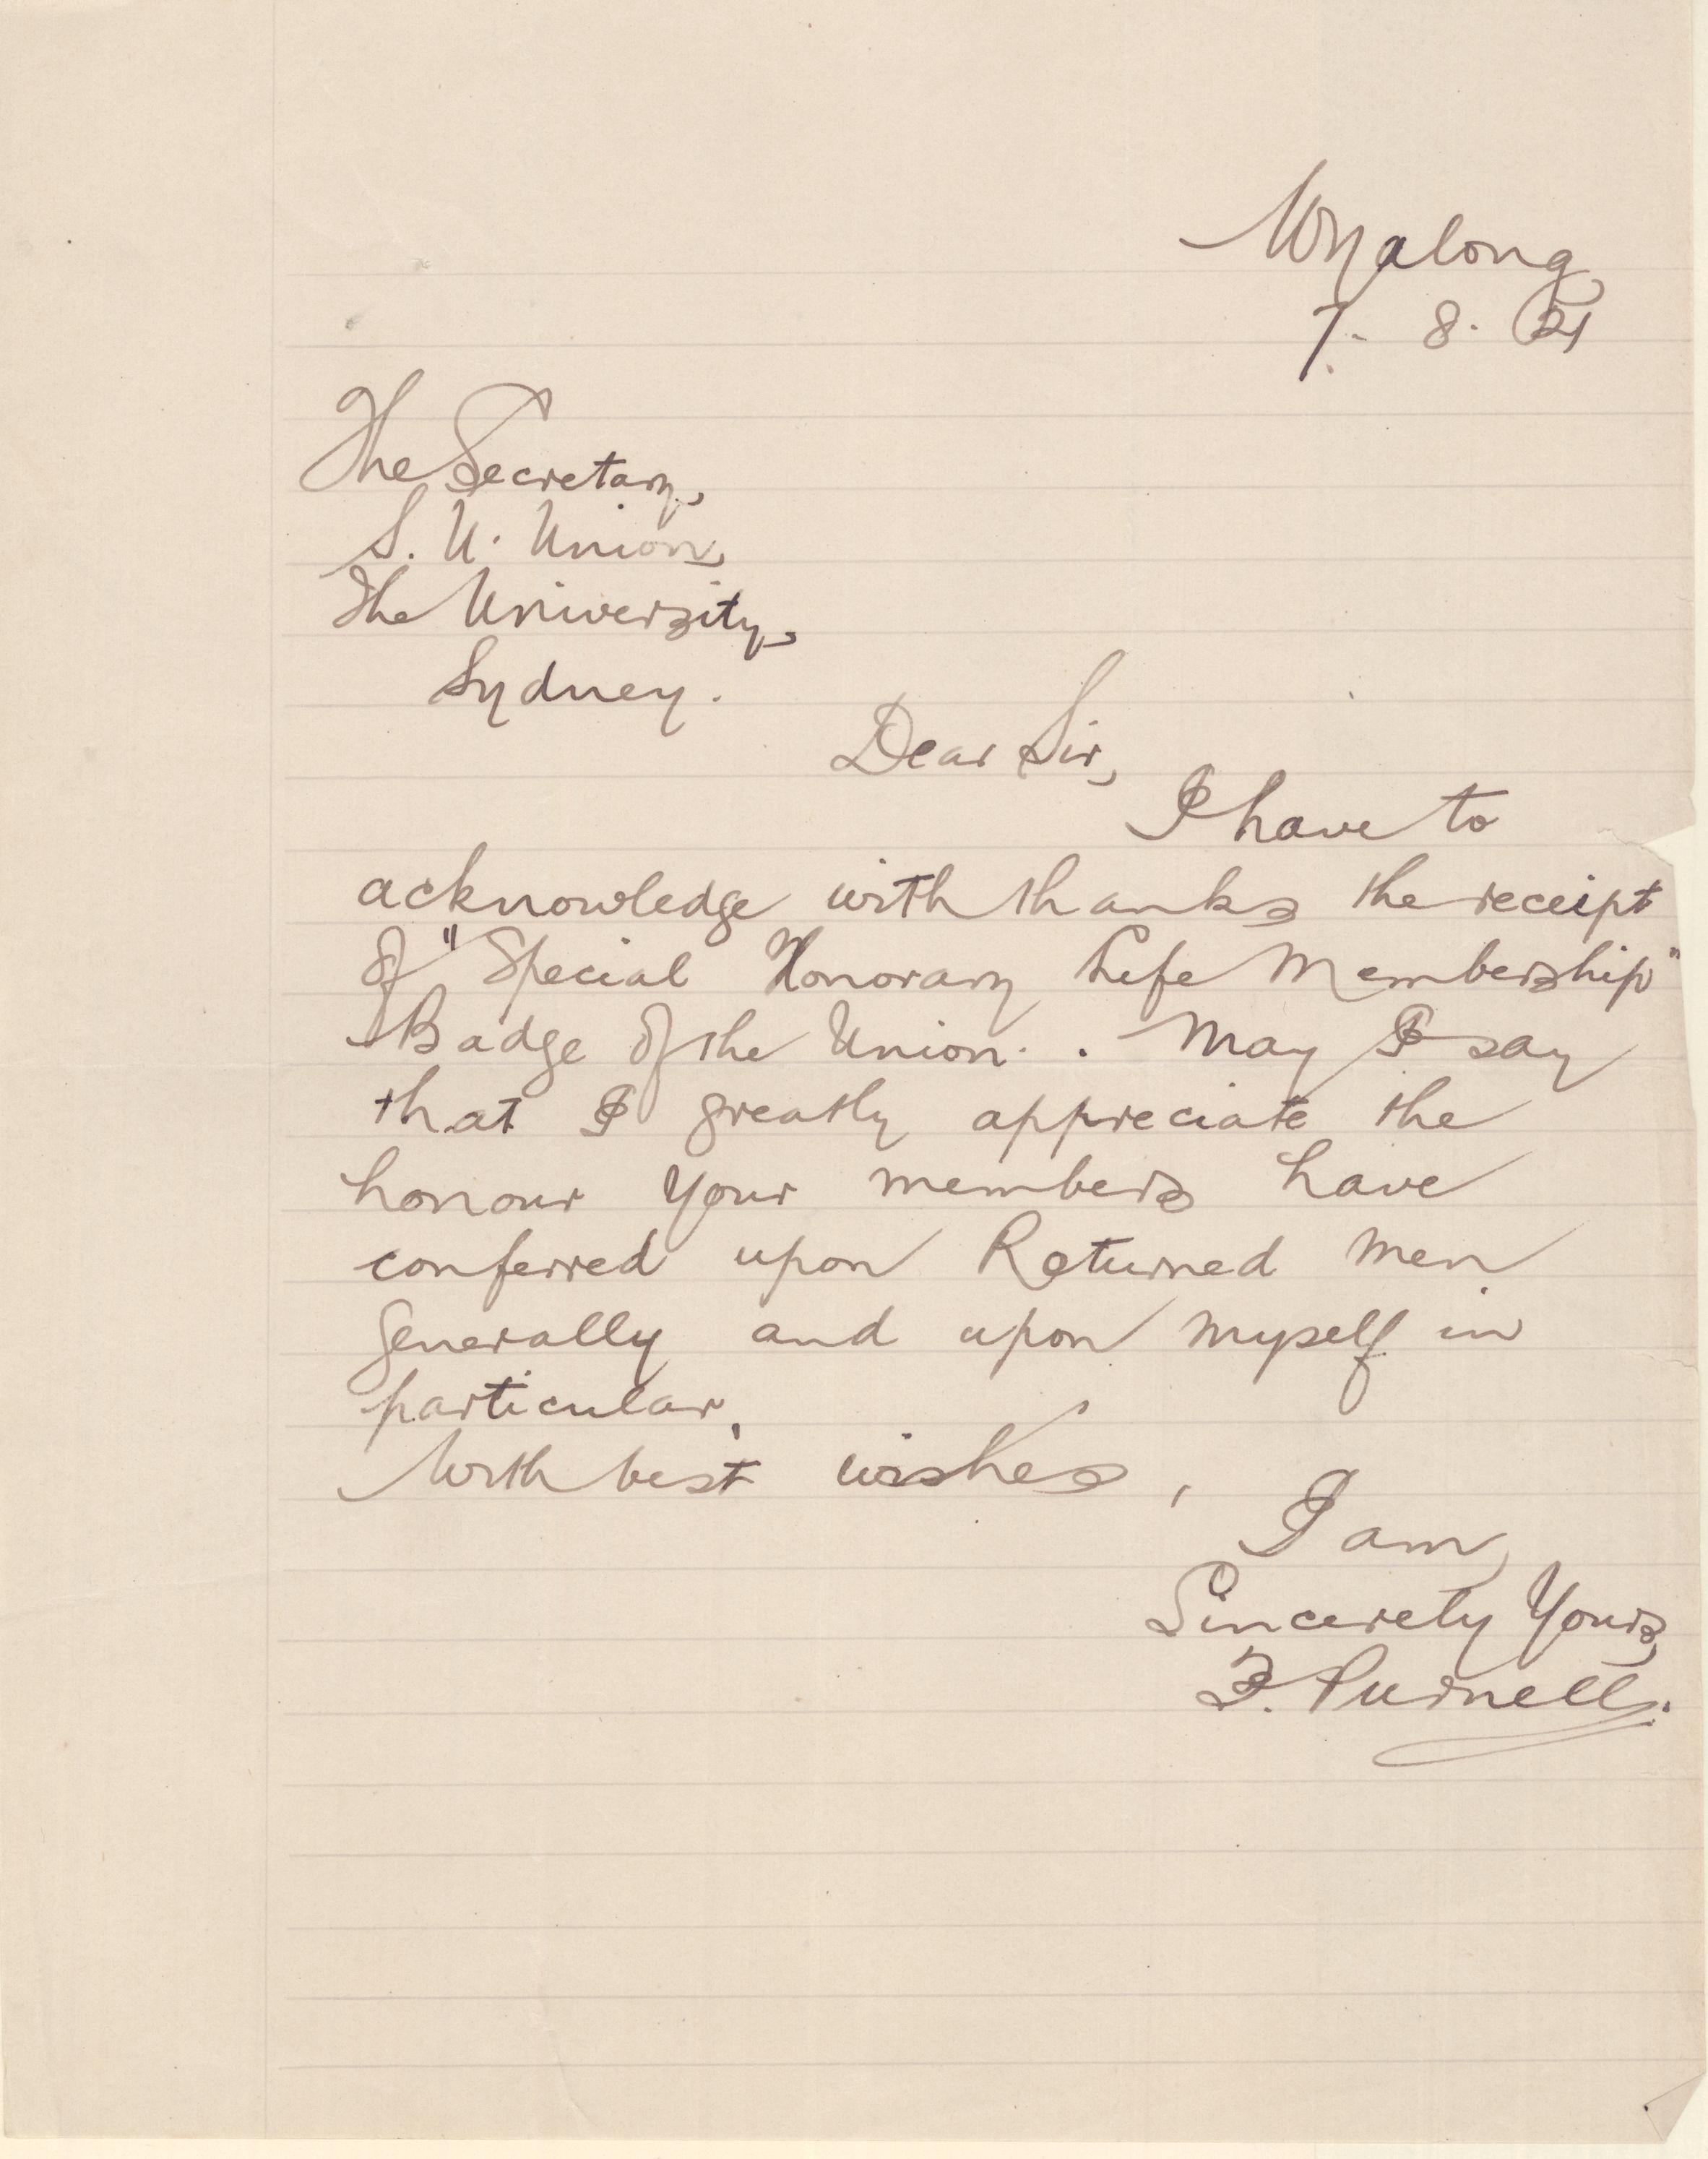 Wyalong,
7. 8. 21
The Secretary,
S. U. Union,
The University,
Sydney.
Dear Sir,
I have to
acknowledge with thanks the receipt
of "Special Honorary Life Membership"
Badge of the Union. . May I say
that I greatly appreciate the
honour your members have
conferred upon Returned men
generally and upon myself in
particular.
With best wishes,
I am,
Sincerely Yours,
F. Purnell.